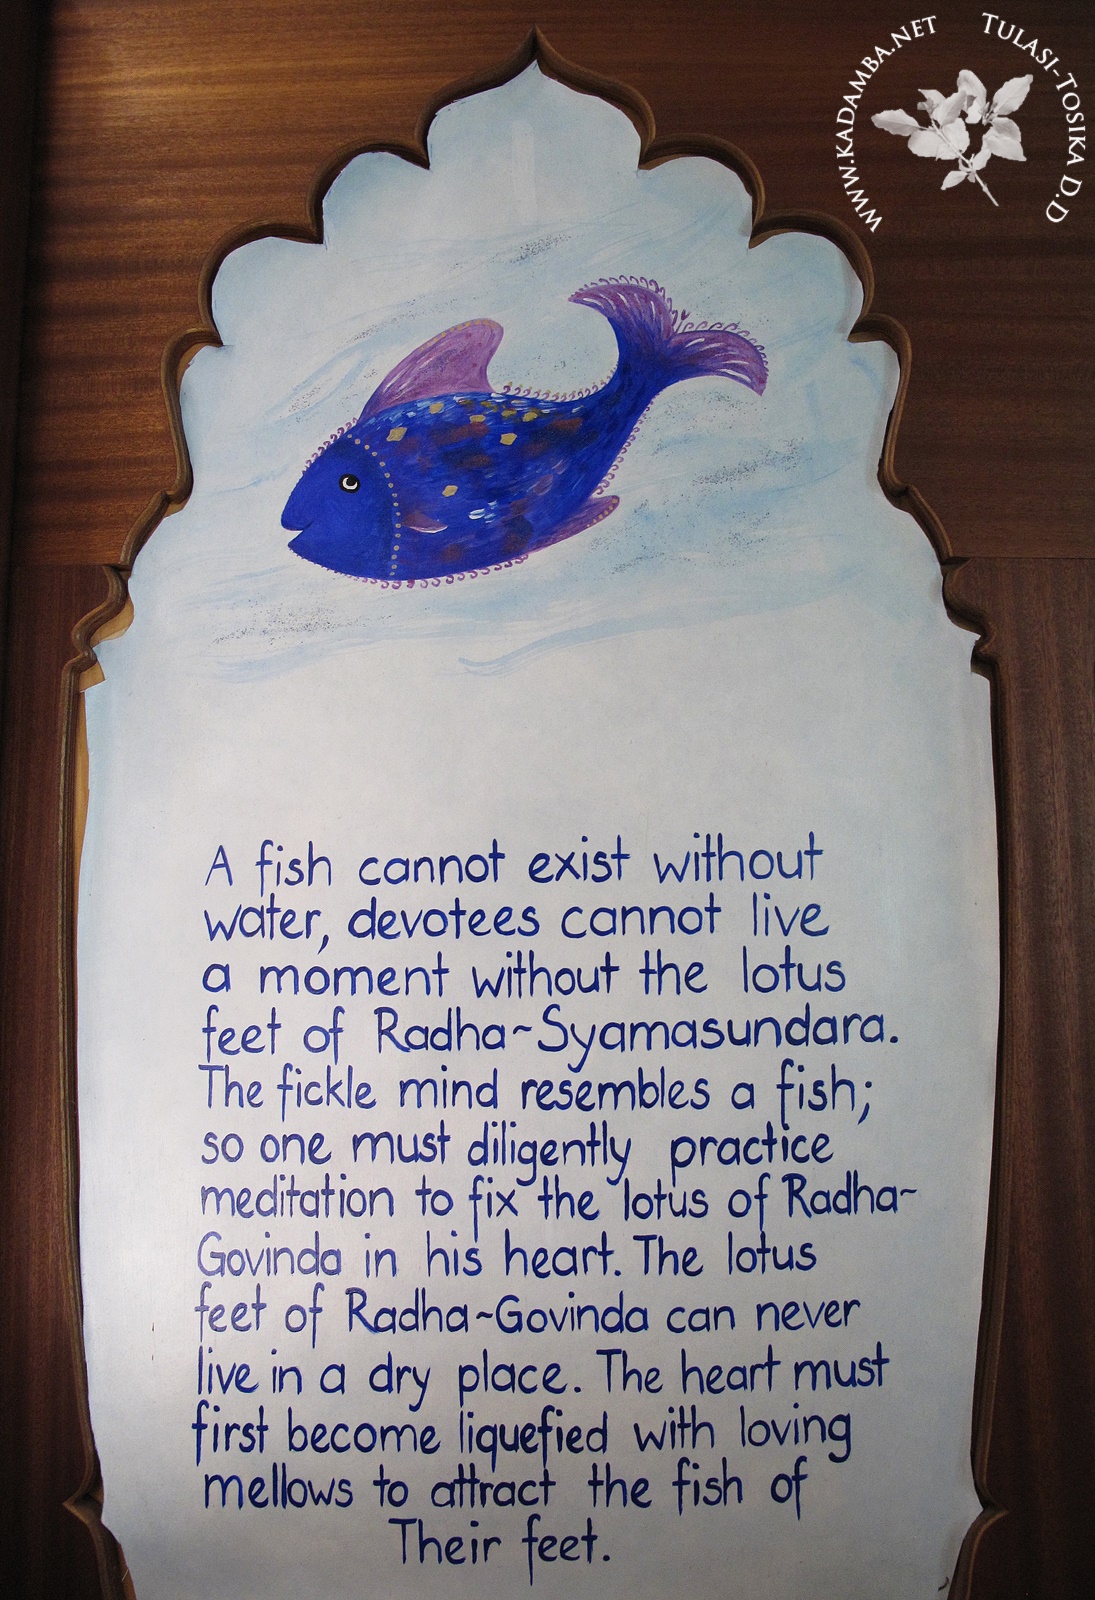 WWW.KADAMBA.NET
TULASI-TOSIKA D.D
A fish cannot exist without
water, devotees cannot live
a moment without the lotus
feet of Radha~Syamasundara.
The fickle mind resembles a fish;
so one must diligently practice
meditation to fix the lotus of Radha~
Govinda in his heart. The lotus
feet of Radha~Govinda can never
live in a dry place. The heart must
first become liquefied with loving
mellows to attract the fish of
Their feet.